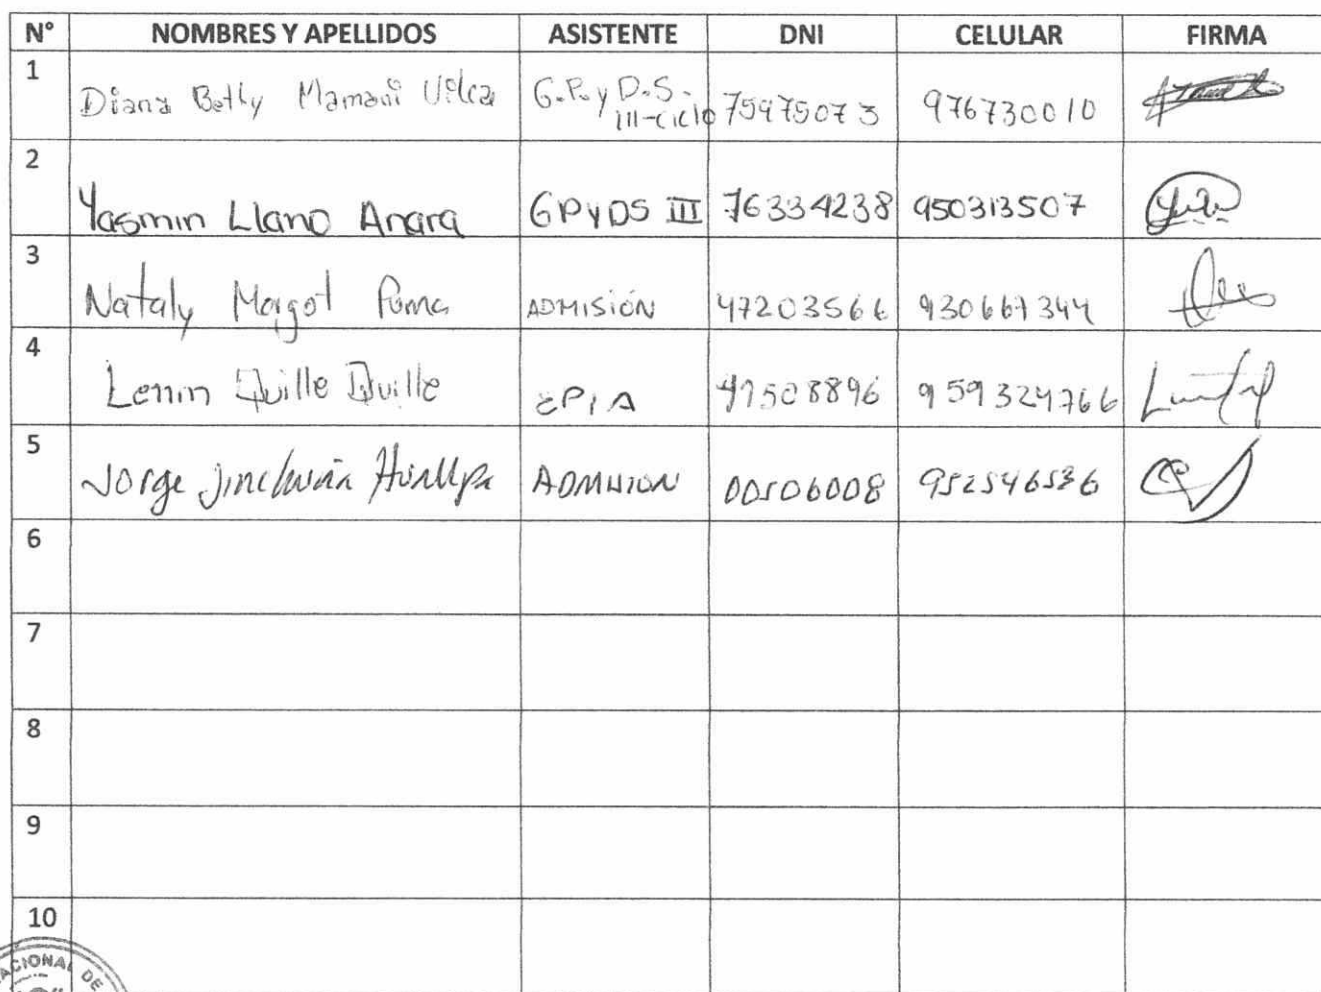 N° NOMBRES Y APELLIDOS ASISTENTE DNI CELULAR FIRMA
1 Diana Betty Mamani Vilca G.P.y D.S. III-ciclo 75975073 976730010
2 Yasmin Llano Anara GPyDS III 76334238 950313507
3 Nataly Margot Puma ADMISIÓN 47203566 930667344
4 Lenin Quille Quille EPIA 41508896 959324766
5 Jorge Jinchuña Huallpa ADMISION 00506008 952546536
6
7
8
9
10
NACIONAL DE